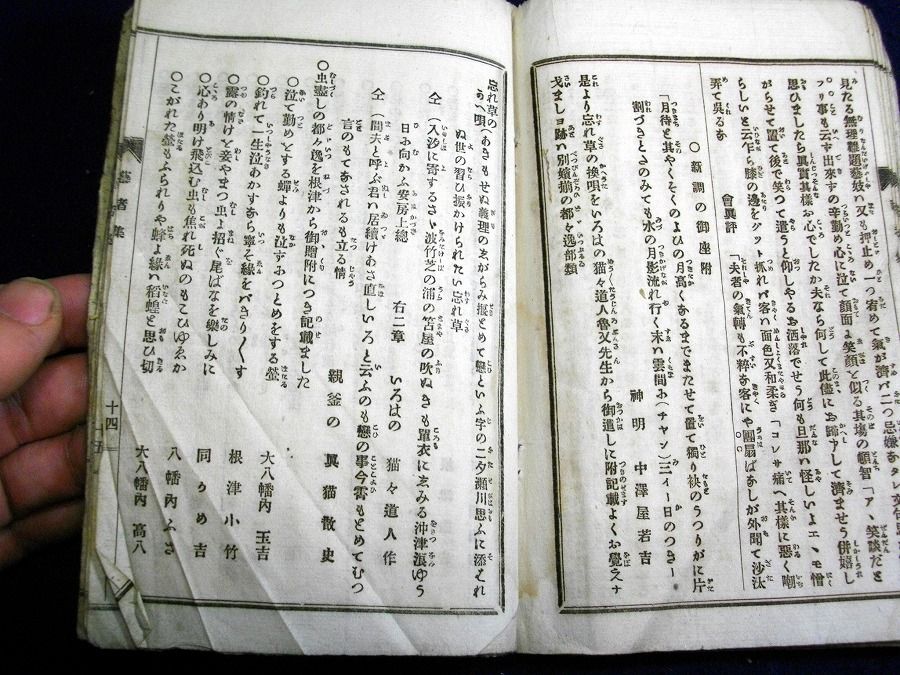 見たる無理難題藝妓い又も押止め一つ宥めて氣が濟バ二つ忌嫌
ツリ事も云ず出來ずの辛勤め心に泣て顏面よ笑顏と似る其場の頓智「ア、笑談だと
思ひましたら眞實其樣お心でしたか夫なら何して此儘にお歸アして濟ませう併嬉し
がらせて置て後で笑つて遣うと仰しやるお洒落でせう何も旦那い怪しいよエヽモ憎
らしいと云乍ら膝の邊をグット抓れバ客い面色又和柔ぎ「コレサ痛へ其樣に惡く嘲
弄て呉るあ
會異評 「夫者の氣轉も不粹あ客にや團扇ばあしが外聞て沙汰
○新調の御座附
神明 中澤屋若吉
「月待と其やくそくのよひの月高くあるまでまたせて置て獨り袂のうつりがに片
割づきとさのみても水の月影流れ行く末い雲間お(チャン)三ィー日のつきー
是より忘れ草の換唄をいろはの猫々道人魯文先生から御進しに附記載よくお覺えナ
戈ましヨ跡い別嬪揃の都々逸部類
忘れ草のあへ唄 (あきもせぬ義理のゑがらみ振とめて戀といふ字の二タ瀬川思ふに添それ
ぬ世の習ひ振かけられたい忘れ草
仝 (入汐に寄するさゝ波竹芝の浦の笘屋の吹ぬきも單衣にゑみる沖津浪ゆう
日お向かふ安房上總
右二章 いろはの 猫々道人作
仝 (間夫と呼ぶ君い居續けあさ直しいろと云ふのも戀の事今霄もとめてむつ
言のもてあされるも立る情
親釜の 眞猫散史
虫盡しの都々逸を根津から御贈附につき記載ました
○泣て勤めとする蟬よりも泣ずつとめをする螢
大八幡内 玉吉
○釣れて一生泣あかすあら寧そ緣をバきり〱す
根津小竹
○露の情けと妾やまつ虫よ招ぐ尾ばなを樂しみに
同うめ吉
○心あり明け飛込む虫も焦れ死ぬのもこひゆゑか
八幡内ふさ
○こがれた螢もふられりや蜂よ緣い稻蝗と思ひ切
大八幡内 高八
藝者集
十四